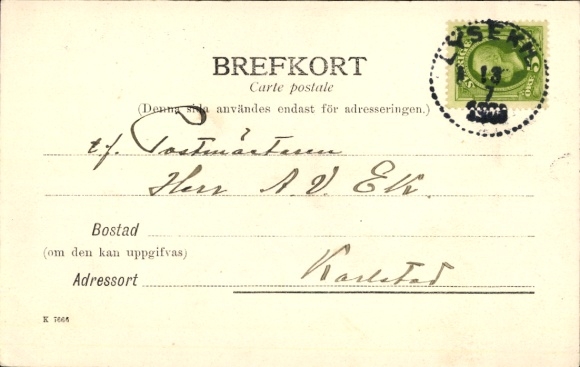 BREFKORT
Carte postale
(Denna sida användes endast för adresseringen.)
t.f. Postmästaren
Herr A. V. Ek.
Bostad
(om den kan uppgifvas)
Adressort Karlstad
K 7666
LYSEKIL
13
7
SVERIGE
5